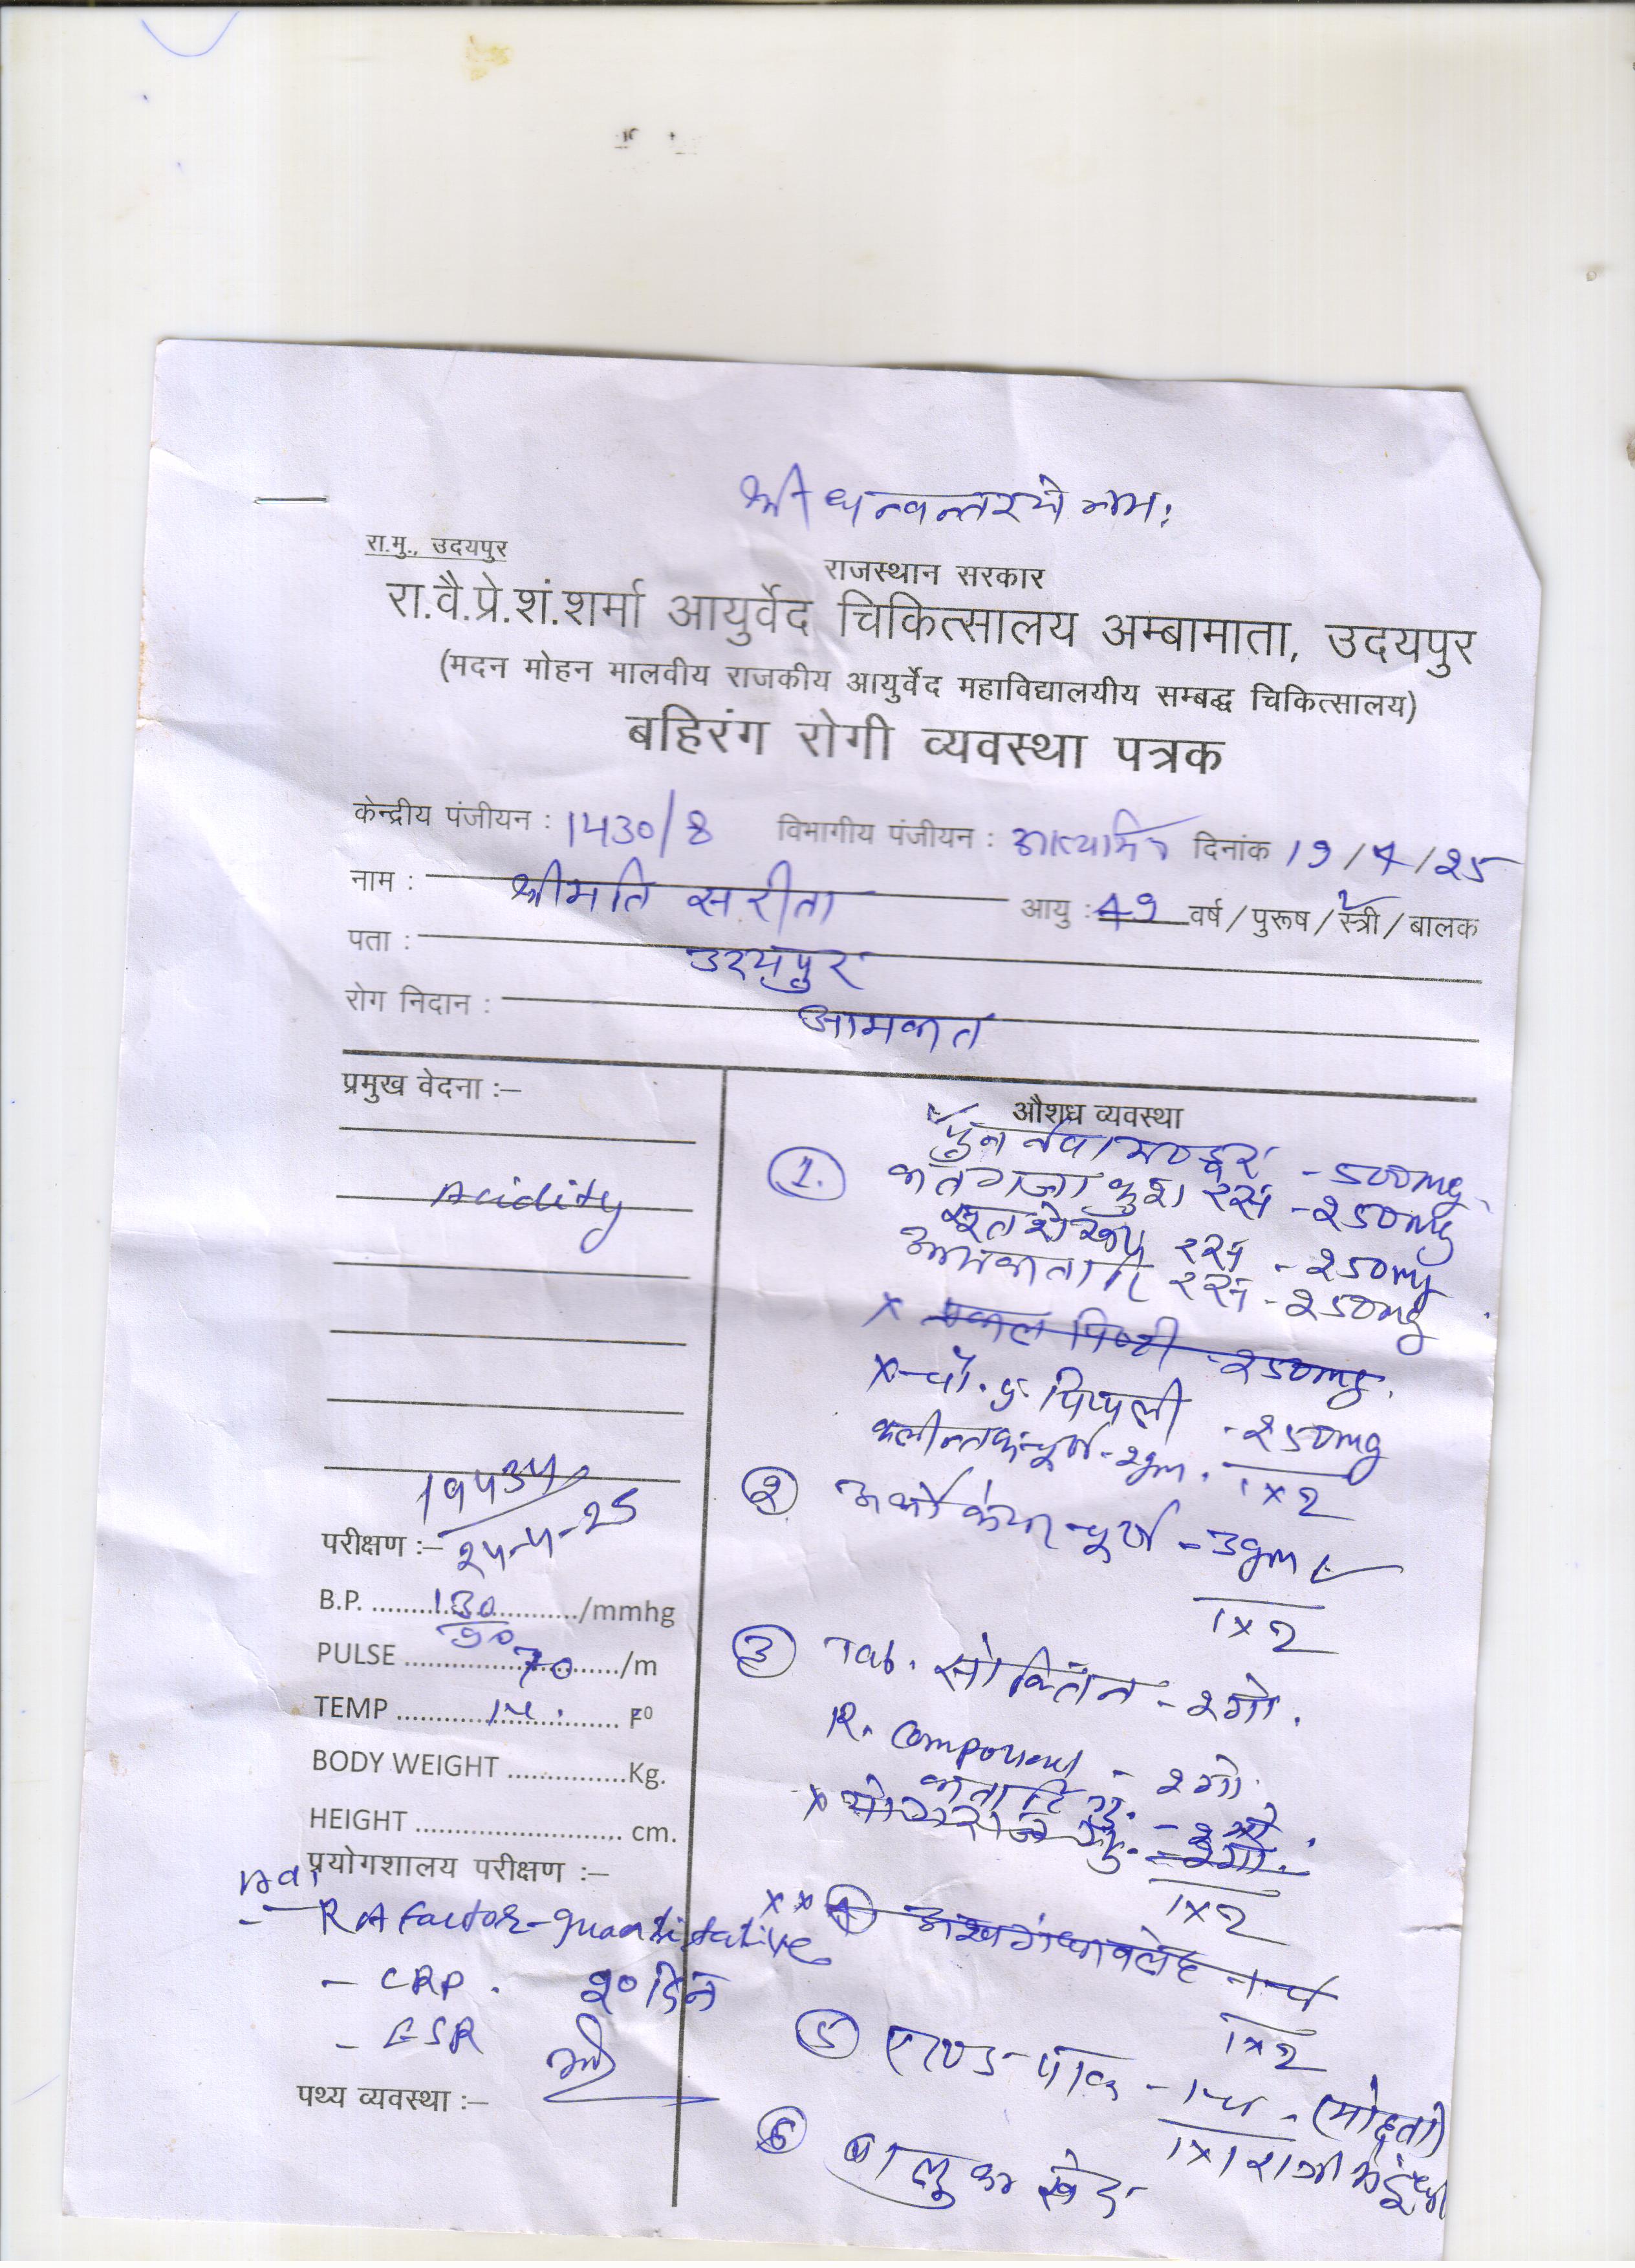 श्री धन्वन्तरये नमः
रा.मु., उदयपुर
राजस्थान सरकार
रा.वै.प्रे.शं.शर्मा आयुर्वेद चिकित्सालय अम्बामाता, उदयपुर
(मदन मोहन मालवीय राजकीय आयुर्वेद महाविद्यालयीय सम्बद्ध चिकित्सालय)
बहिरंग रोगी व्यवस्था पत्रक
केन्द्रीय पंजीयन : 1430/8 विभागीय पंजीयन : दिनांक 19/4/25
नाम : श्रीमति सरीता आयु : 49 वर्ष/पुरूष/स्त्री/बालक
पता : उदयपुर
रोग निदान : आमवात
प्रमुख वेदना :–
Acidity
19434
24-4-25
परीक्षण :–
B.P. 130/90 /mmhg
PULSE 70 /m
TEMP F⁰
BODY WEIGHT Kg.
HEIGHT cm.
प्रयोगशालय परीक्षण :–
- RA factor - quantitative
- CRP.
२० दिन
- ESR
पथ्य व्यवस्था :–
औशध व्यवस्था
1. पुनर्नवा मण्डूर - 500mg
वातगजांकुश रस - 250mg
सूतशेखर रस - 250mg
आमवातारि रस - 250mg
x प्रवाल पिष्टी - 250mg.
x पिप्पली - 250mg
चूर्ण - 2gm.
1x2
२ चूर्ण - 3gm
1x2
३ Tab. - २गो.
R. Compound - २गो.
x योगराज गु. - २गो.
1x2
xx 4 अश्वगंधावलेह
1x2
5 एरण्ड पाक -
1x1 रात्री
6 बालुका स्वेद